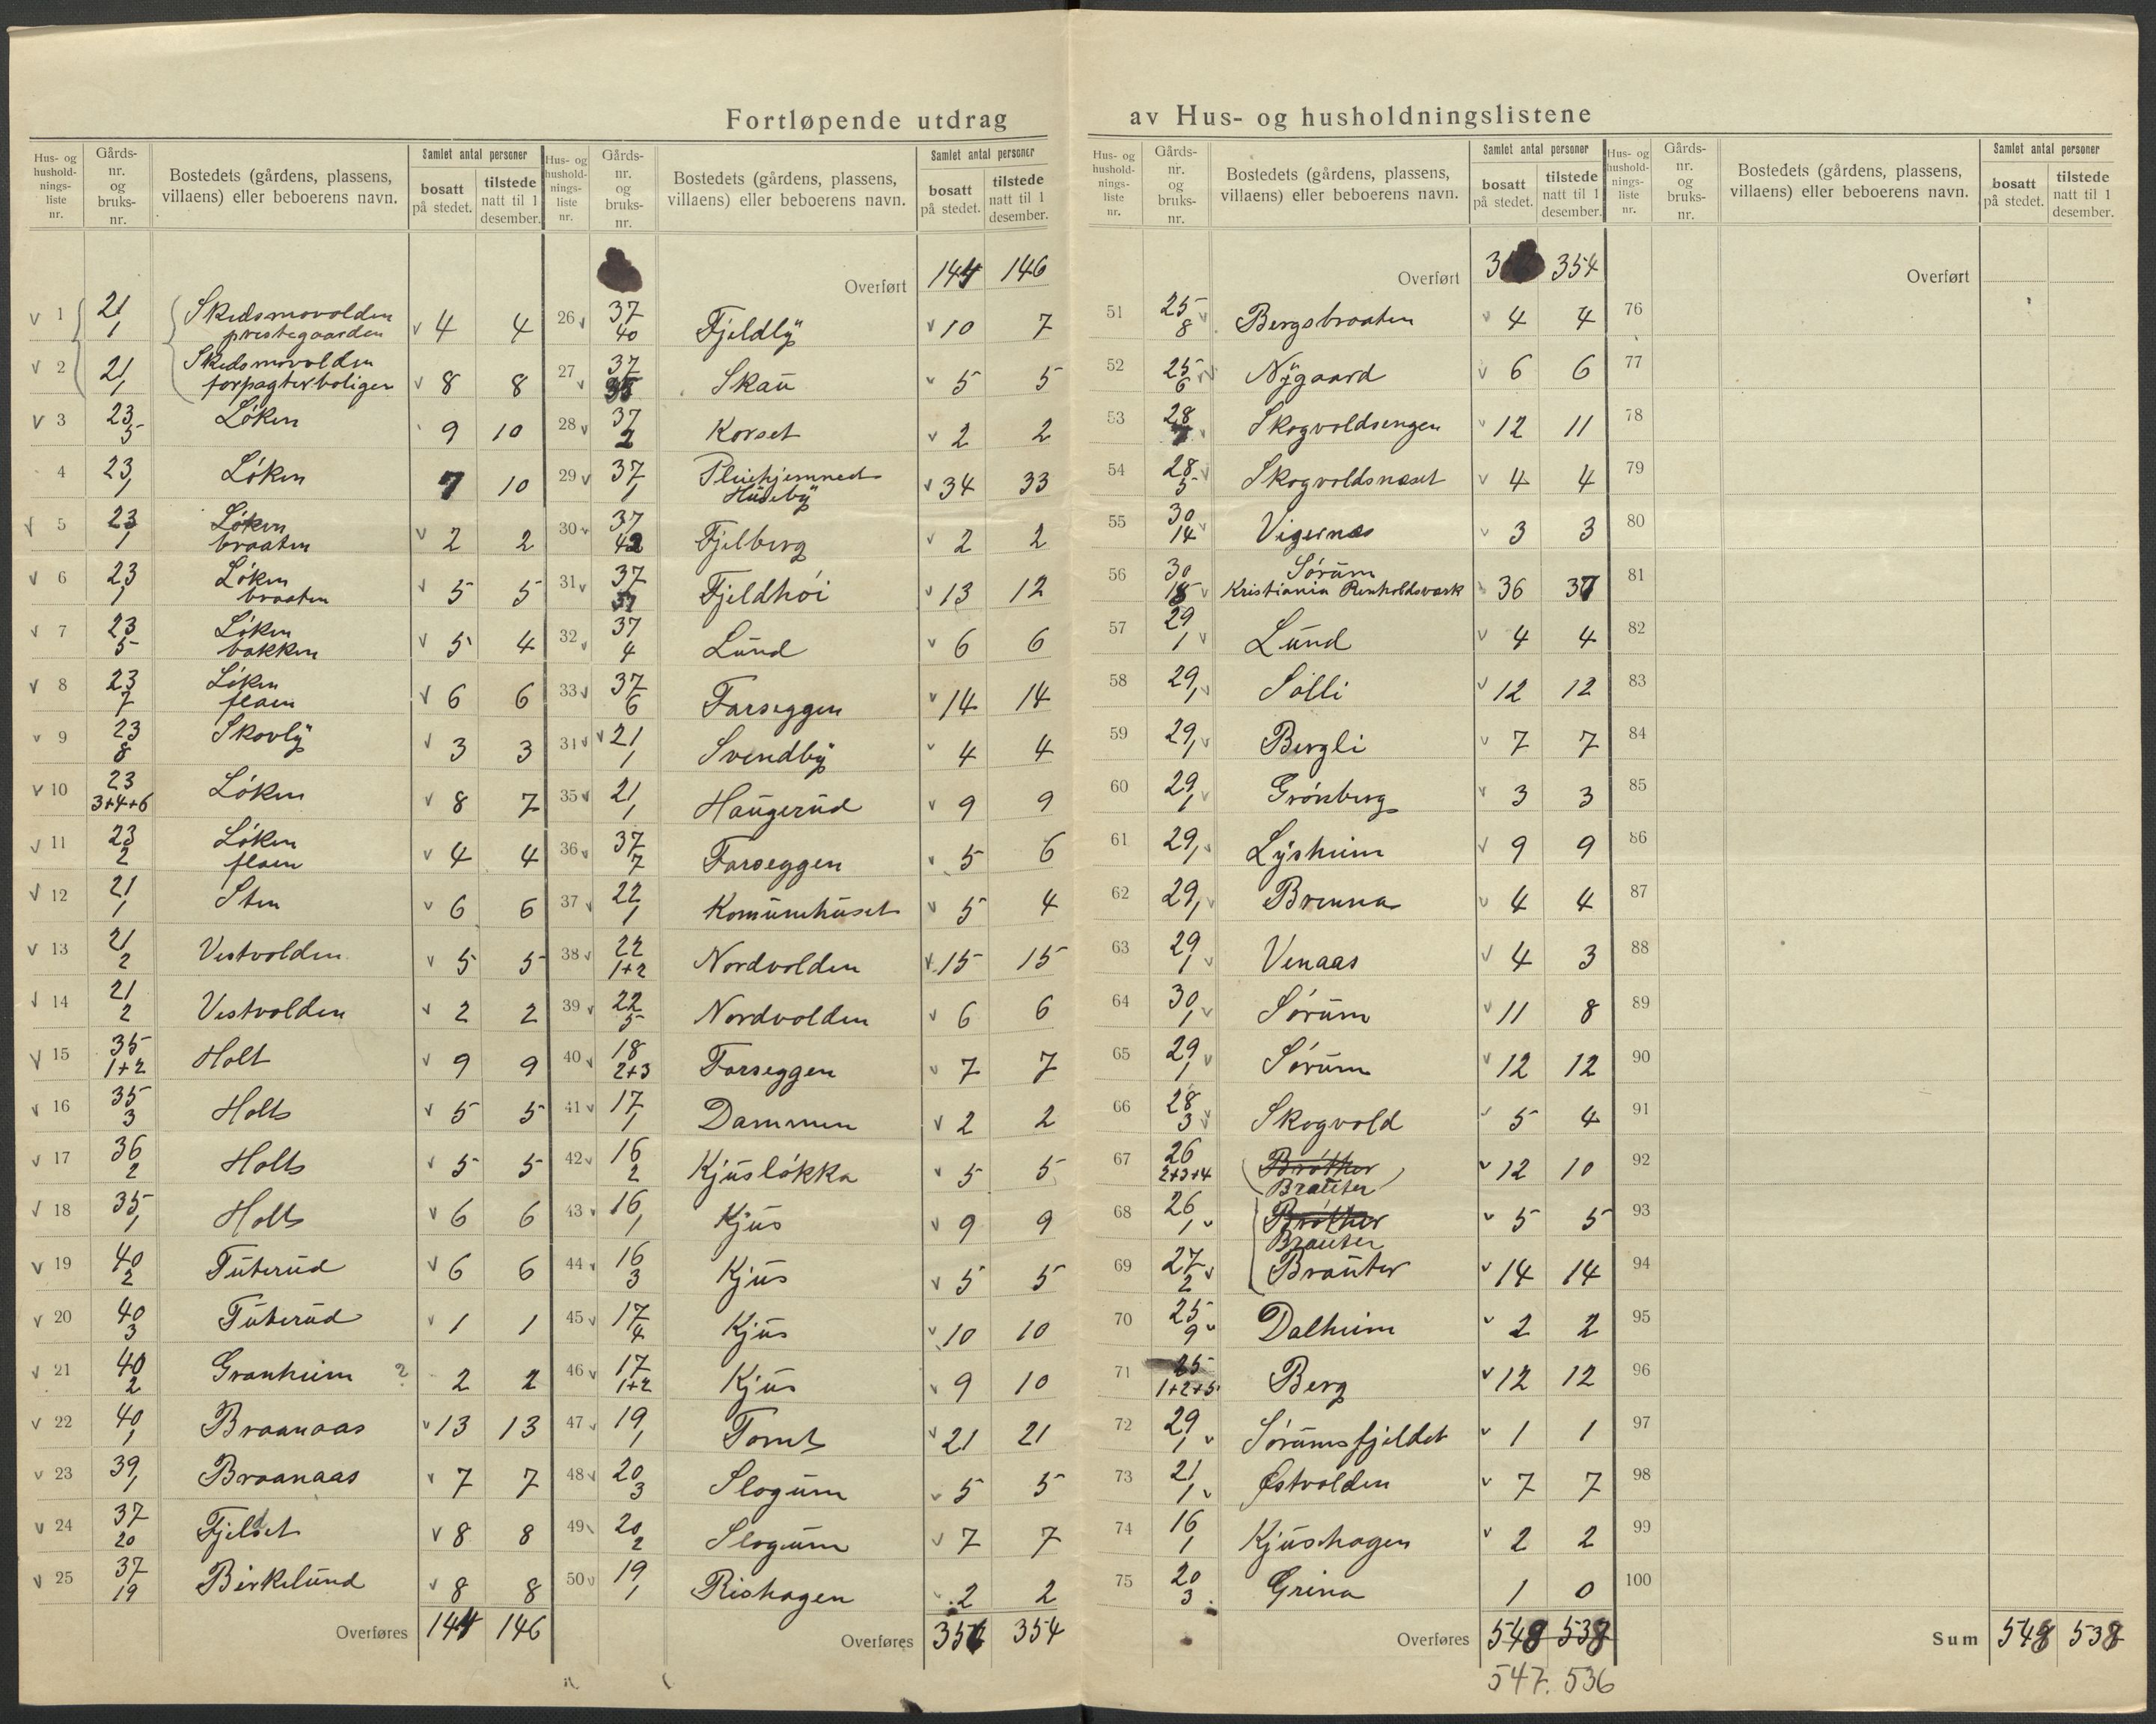 Fortløpende utdrag av Hus- og husholdningslistene
Hus- og hushold- nings- liste nr. | Gårds- nr. og bruks- nr. | Bostedets (gårdens, plassens, villaens) eller beboerens navn. | Samlet antal personer | bosatt på stedet. | tilstede natt til 1 desember.
1 21 1 Skedsmovolden prestegaarden 4 4
2 21 1 Skedsmovolden forpagterboligen 8 8
3 23 5 Løken 9 10
4 23 1 Løken 7 10
5 23 1 Løken braaten 2 2
6 23 1 Løken braaten 5 5
7 23 5 Løken bakken 5 4
8 23 7 Løken flaen 6 6
9 23 8 Skovly 3 3
10 23 3+4+6 Løken 8 7
11 23 2 Løken flaen 4 4
12 21 1 Sten 6 6
13 21 2 Vestvolden 5 5
14 21 2 Vestvolden 2 2
15 35 1+2 Holt 9 9
16 35 3 Holt 5 5
17 36 2 Holt 5 5
18 35 1 Holt 6 6
19 40 2 Tuterud 6 6
20 40 3 Tuterud 1 1
21 40 2 Granheim ? 2 2
22 40 1 Braanaas 13 13
23 39 1 Braanaas 7 7
24 37 20 Fjeldet 8 8
25 37 19 Birkelund 8 8
Overføres 144 146
Hus- og hushold- nings- liste nr. | Gårds- nr. og bruks- nr. | Bostedets (gårdens, plassens, villaens) eller beboerens navn. | Samlet antal personer | bosatt på stedet. | tilstede natt til 1 desember.
Overført 144 146
26 37 40 Fjeldly 10 7
27 37 Skau 5 5
28 37 2 Korset 2 2
29 37 1 Pleiehjemmet Huseby 34 33
30 37 42 Fjelberg 2 2
31 37 37 Fjeldhøi 13 12
32 37 4 Lund 6 6
33 37 6 Farseggen 14 14
31 21 1 Svendby 4 4
35 21 1 Haugerud 9 9
36 37 7 Farseggen 5 6
37 22 1 Komunehuset 5 4
38 22 1+2 Nordvolden 15 15
39 22 5 Nordvolden 6 6
40 18 2+3 Farseggen 7 7
41 17 1 Dammen 2 2
42 16 2 Kjusløkka 5 5
43 16 1 Kjus 9 9
44 16 3 Kjus 5 5
45 17 4 Kjus 10 10
46 17 1+2 Kjus 9 10
47 19 1 Tomt 21 21
48 20 3 Slogum 5 5
49 20 2 Slogum 7 7
50 19 1 Rishagen 2 2
Overføres 356 354
Hus- og hushold- nings- liste nr. | Gårds- nr. og bruks- nr. | Bostedets (gårdens, plassens, villaens) eller beboerens navn. | Samlet antal personer | bosatt på stedet. | tilstede natt til 1 desember.
Overført 3 354
51 25 8 Bergsbraaten 4 4
52 25 6 Nygaard 6 6
53 28 Skogvoldsengen 12 11
54 28 5 Skogvoldsnæset 4 4
55 30 14 Vigernæs 3 3
56 30 15 Sørum Kristiania Renholdsverk 36 37
57 29 1 Lund 4 4
58 29 1 Solli 12 12
59 29 1 Bergli 7 7
60 29 1 Grønberg 3 3
61 29 1 Lysheim 9 9
62 29 1 Brenna 4 4
63 29 1 Venaas 4 3
64 30 1 Sørum 11 8
65 29 1 Sørum 12 12
66 28 3 Skogvold 5 4
67 26 2+3+4 Brøther Brauter 12 10
68 26 1 Brøther Brauter 5 5
69 27 2 Brauter 14 14
70 25 9 Dalheim 2 2
71 25 1+2+5 Berg 12 12
72 29 1 Sørumsfjeldet 1 1
73 21 1 Østvolden 7 7
74 16 1 Kjushagen 2 2
75 20 3 Grina 1 0
Overføres 548 538
547. 536
Hus- og hushold- nings- liste nr. | Gårds- nr. og bruks- nr. | Bostedets (gårdens, plassens, villaens) eller beboerens navn. | Samlet antal personer | bosatt på stedet. | tilstede natt til 1 desember.
Overført
76
77
78
79
80
81
82
83
84
85
86
87
88
89
90
91
92
93
94
95
96
97
98
99
100
Sum 548 538